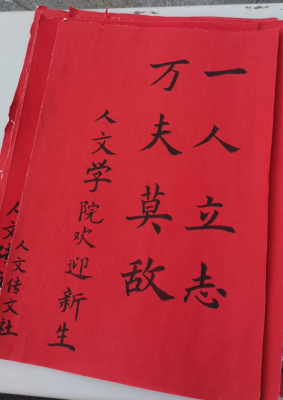 一人立志
万夫莫敌
人文学院欢迎新生
人文传文社